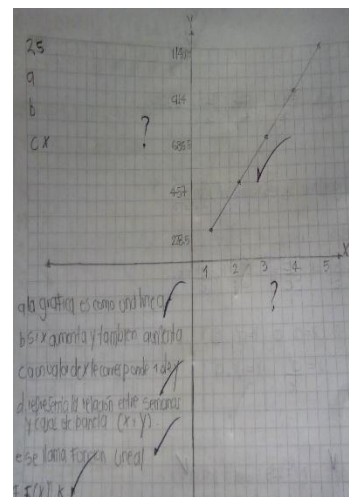 25
a
b
c x
?
Y
1142.5
914
685.5
457
228.5
X
1 2 3 4 5
?
a la grafica es como una linea
b si x aumenta y tambien aumenta
c a un valor de x le corresponde 1 de y
d representa la relación entre semanas
y cajas de panela (x, y)
e se llama función lineal